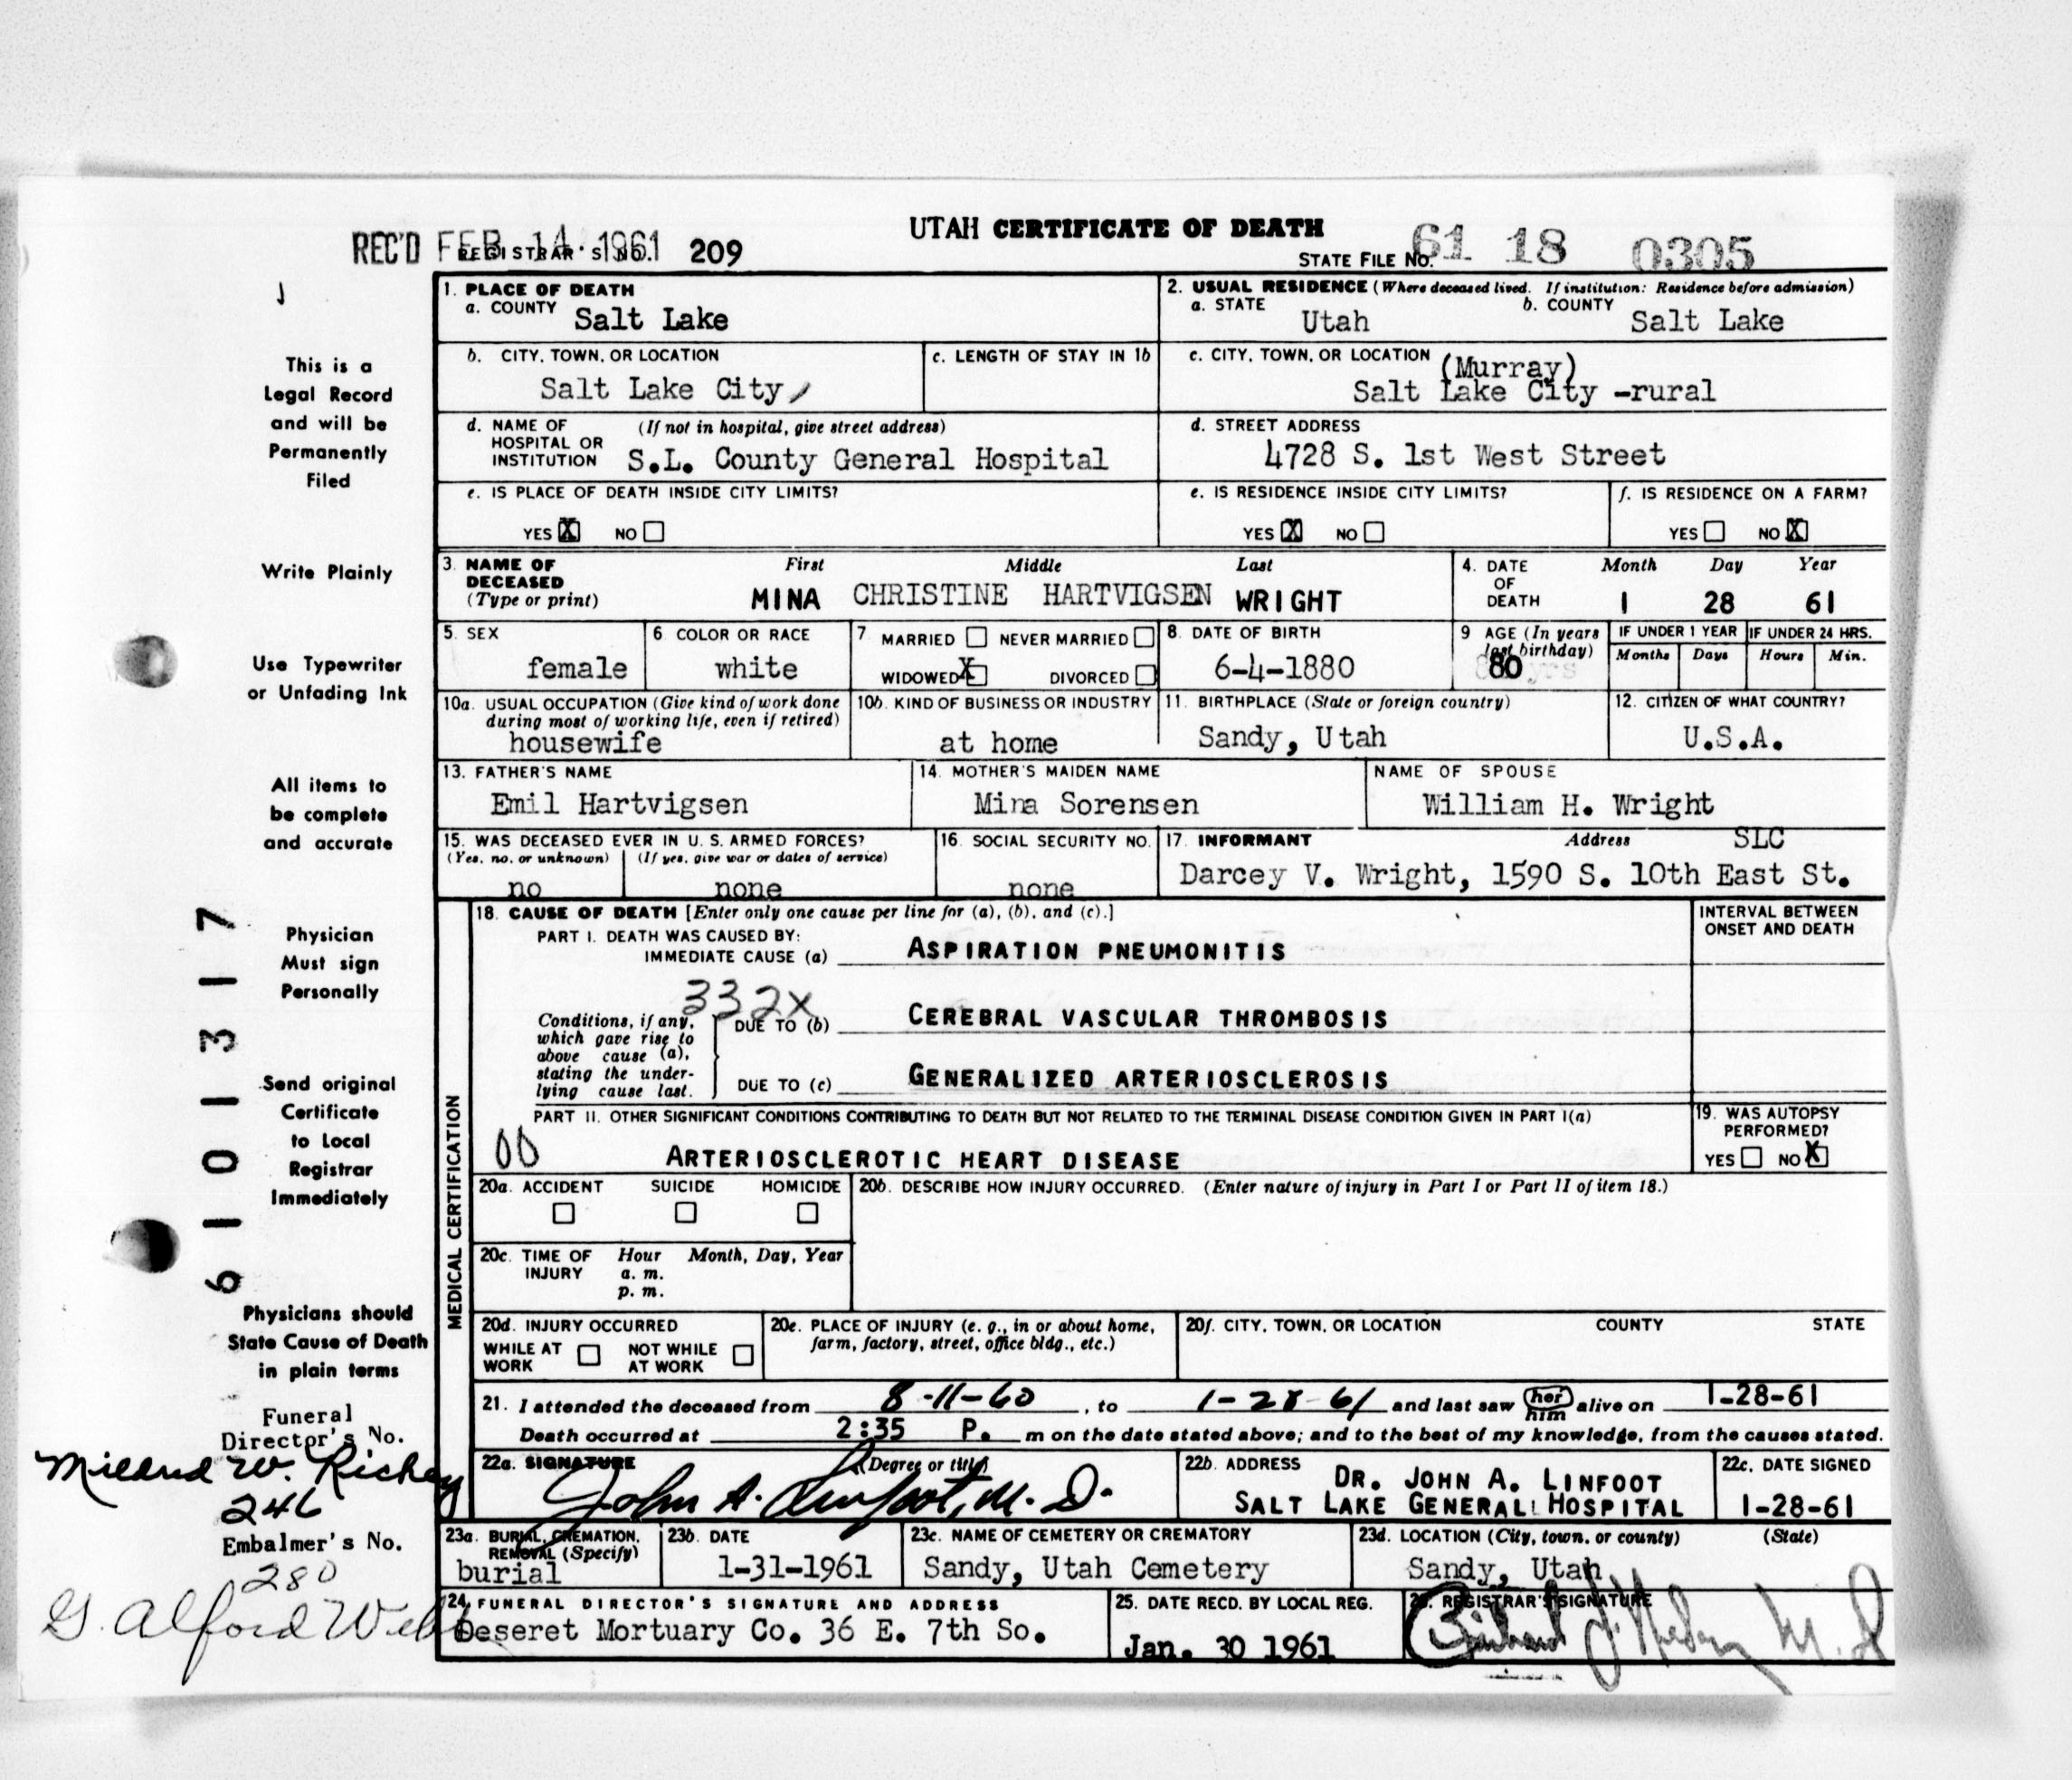 UTAH CERTIFICATE OF DEATH
REC'D FEB 14 1961
REGISTRAR'S NO. 209
STATE FILE NO. 61 18 0305
1. PLACE OF DEATH
a. COUNTY Salt Lake
2. USUAL RESIDENCE (Where deceased lived. If institution: Residence before admission)
a. STATE Utah b. COUNTY Salt Lake
b. CITY, TOWN, OR LOCATION
Salt Lake City
c. LENGTH OF STAY IN 1b
c. CITY, TOWN, OR LOCATION (Murray)
Salt Lake City -rural
d. NAME OF HOSPITAL OR INSTITUTION (If not in hospital, give street address)
S.L. County General Hospital
d. STREET ADDRESS
4728 S. 1st West Street
e. IS PLACE OF DEATH INSIDE CITY LIMITS?
YES X NO
e. IS RESIDENCE INSIDE CITY LIMITS?
YES X NO
f. IS RESIDENCE ON A FARM?
YES NO X
3. NAME OF DECEASED (Type or print) First Middle Last
MINA CHRISTINE HARTVIGSEN WRIGHT
4. DATE OF DEATH Month Day Year
1 28 61
5. SEX
female
6. COLOR OR RACE
white
7. MARRIED NEVER MARRIED
WIDOWED X DIVORCED
8. DATE OF BIRTH
6-4-1880
9 AGE (In years last birthday)
80
IF UNDER 1 YEAR IF UNDER 24 HRS.
Months Days Hours Min.
10a. USUAL OCCUPATION (Give kind of work done during most of working life, even if retired)
housewife
10b. KIND OF BUSINESS OR INDUSTRY
at home
11. BIRTHPLACE (State or foreign country)
Sandy, Utah
12. CITIZEN OF WHAT COUNTRY?
U.S.A.
13. FATHER'S NAME
Emil Hartvigsen
14. MOTHER'S MAIDEN NAME
Mina Sorensen
NAME OF SPOUSE
William H. Wright
15. WAS DECEASED EVER IN U. S. ARMED FORCES?
(Yes, no, or unknown) (If yes, give war or dates of service)
no none
16. SOCIAL SECURITY NO.
none
17. INFORMANT Address SLC
Darcey V. Wright, 1590 S. 10th East St.
MEDICAL CERTIFICATION
18. CAUSE OF DEATH [Enter only one cause per line for (a), (b), and (c).]
INTERVAL BETWEEN ONSET AND DEATH
PART I. DEATH WAS CAUSED BY:
IMMEDIATE CAUSE (a) ASPIRATION PNEUMONITIS
332X
Conditions, if any, which gave rise to above cause (a), stating the underlying cause last.
DUE TO (b) CEREBRAL VASCULAR THROMBOSIS
DUE TO (c) GENERALIZED ARTERIOSCLEROSIS
PART II. OTHER SIGNIFICANT CONDITIONS CONTRIBUTING TO DEATH BUT NOT RELATED TO THE TERMINAL DISEASE CONDITION GIVEN IN PART I(a)
00 ARTERIOSCLEROTIC HEART DISEASE
19. WAS AUTOPSY PERFORMED?
YES NO X
20a. ACCIDENT SUICIDE HOMICIDE
20b. DESCRIBE HOW INJURY OCCURRED. (Enter nature of injury in Part I or Part II of item 18.)
20c. TIME OF INJURY Hour Month, Day, Year
a. m.
p. m.
20d. INJURY OCCURRED
WHILE AT WORK NOT WHILE AT WORK
20e. PLACE OF INJURY (e. g., in or about home, farm, factory, street, office bldg., etc.)
20f. CITY, TOWN, OR LOCATION COUNTY STATE
21. I attended the deceased from 8-11-60, to 1-28-61 and last saw her him alive on 1-28-61
Death occurred at 2:35 P. m on the date stated above; and to the best of my knowledge, from the causes stated.
22a. SIGNATURE (Degree or title)
John A. Linfoot, M.D.
22b. ADDRESS DR. JOHN A. LINFOOT
SALT LAKE GENERAL HOSPITAL
22c. DATE SIGNED
1-28-61
23a. BURIAL, CREMATION, REMOVAL (Specify)
burial
23b. DATE
1-31-1961
23c. NAME OF CEMETERY OR CREMATORY
Sandy, Utah Cemetery
23d. LOCATION (City, town, or county) (State)
Sandy, Utah
24. FUNERAL DIRECTOR'S SIGNATURE AND ADDRESS
Deseret Mortuary Co. 36 E. 7th So.
25. DATE RECD. BY LOCAL REG.
Jan. 30 1961
26. REGISTRAR'S SIGNATURE
This is a
Legal Record
and will be
Permanently
Filed
Write Plainly
Use Typewriter
or Unfading Ink
All items to
be complete
and accurate
Physician
Must sign
Personally
Send original
Certificate
to Local
Registrar
Immediately
Physicians should
State Cause of Death
in plain terms
Funeral
Director's No.
Mildred W. Richey
246
Embalmer's No.
280
G. Alford Webb
6 1 0 1 3 1 7